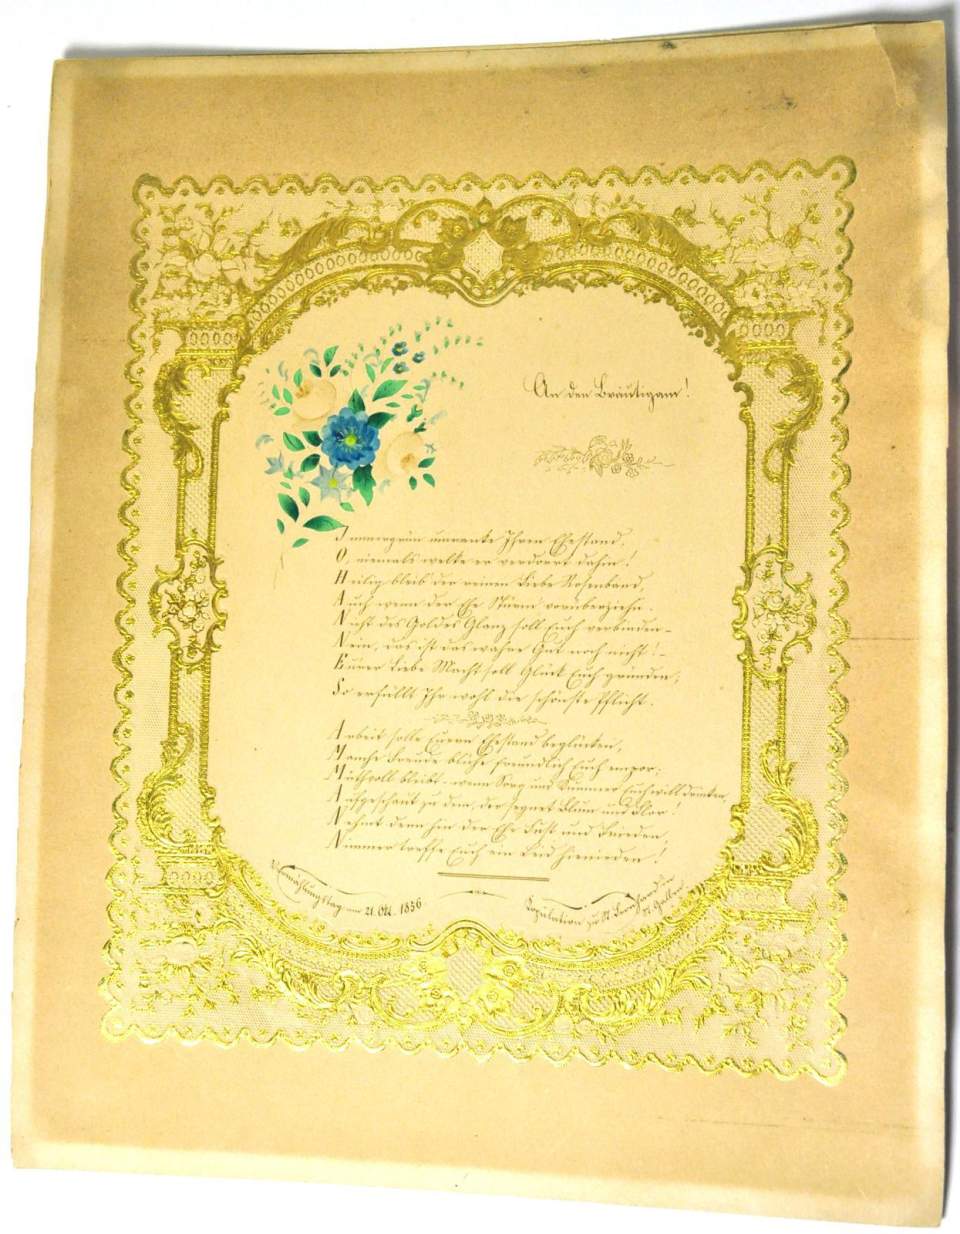 An den Bräutigam!
Immergrün umranke Ihren Ehestand,
O, niemals welke er verdorrt dahin!
Heilig bleib der reinen Liebe Rosenband,
Auch wenn der Ehe Stürm' vorüberziehn.
Nicht des Goldes Glanz soll Euch verbinden –
Nein, das ist das wahre Gut noch nicht! –
Eurer Liebe Macht soll Glück Euch gründen,
So erfüllt Ihr wohl die schönste Pflicht.
Arbeit solle Euren Ehestand beglücken,
Manche Freude blühe freundlich Euch empor;
Muthvoll bleibt – wenn Sorg und Kummer Euch will drücken,
Aufgeschaut zu dem, der segnet Blum und Flor!
Nehmt denn hin der Ehe Lust und Freuden,
Nimmer treffe Euch ein Leid hienieden!
Vermählungstag am 21. Okt. 1856
Kopulation zu St. Leonhard in
St. Gallen